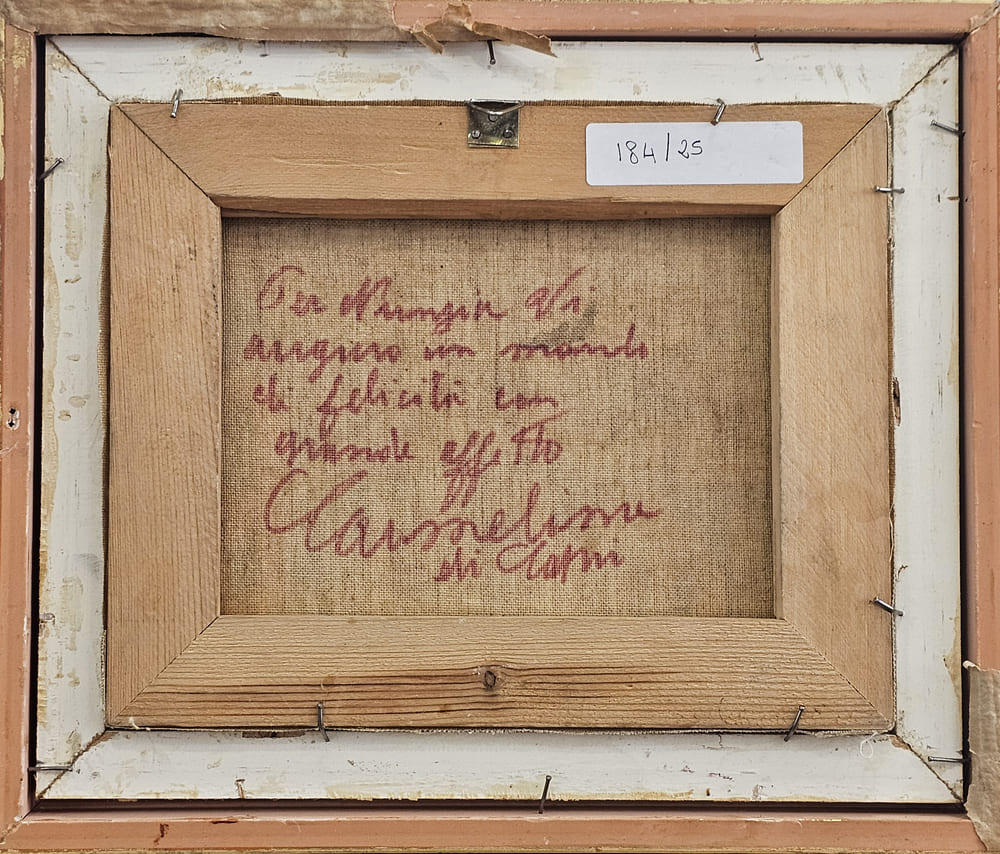 184/25
Per Nunzia Vi
auguro un mondo
di felicità con
grande affetto
Carmelina
di Capri